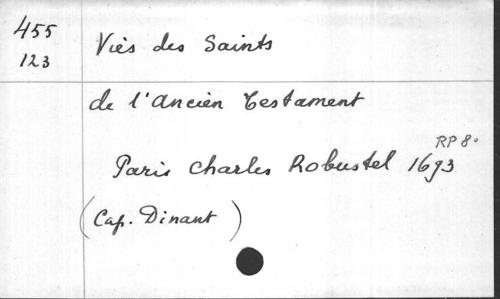 455
123
Viès des Saints
de l'Ancien Testament
RP 8°
Paris Charles Robustel 1693
(Cap. Dinant)